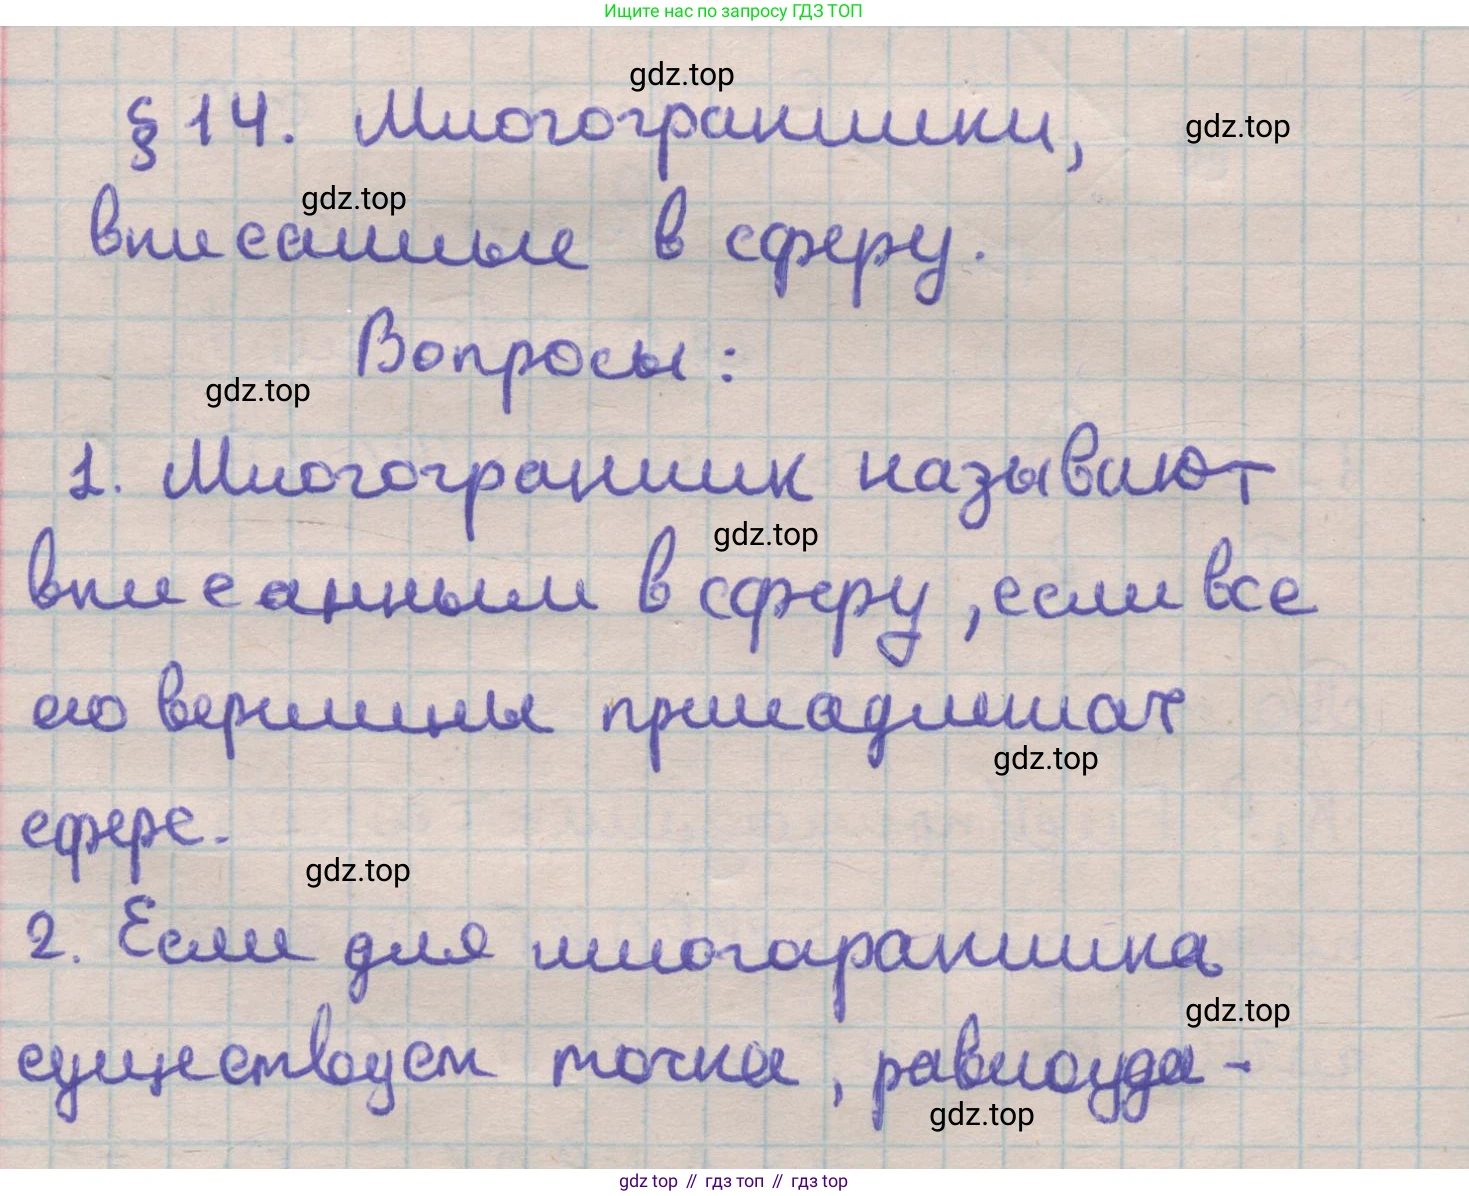 Ищите нас по запросу ГДЗ ТОП
gdz.top
§ 14. Многогранники,
gdz.top
gdz.top
вписанные в сферу.
Вопросы:
gdz.top
1. Многогранник называют
gdz.top
вписанным в сферу, если все
его вершины принадлежат
gdz.top
сфере.
gdz.top
2. Если для многогранника
gdz.top
существует точка, равноуда-
gdz.top
gdz top // гдз топ // гдз top